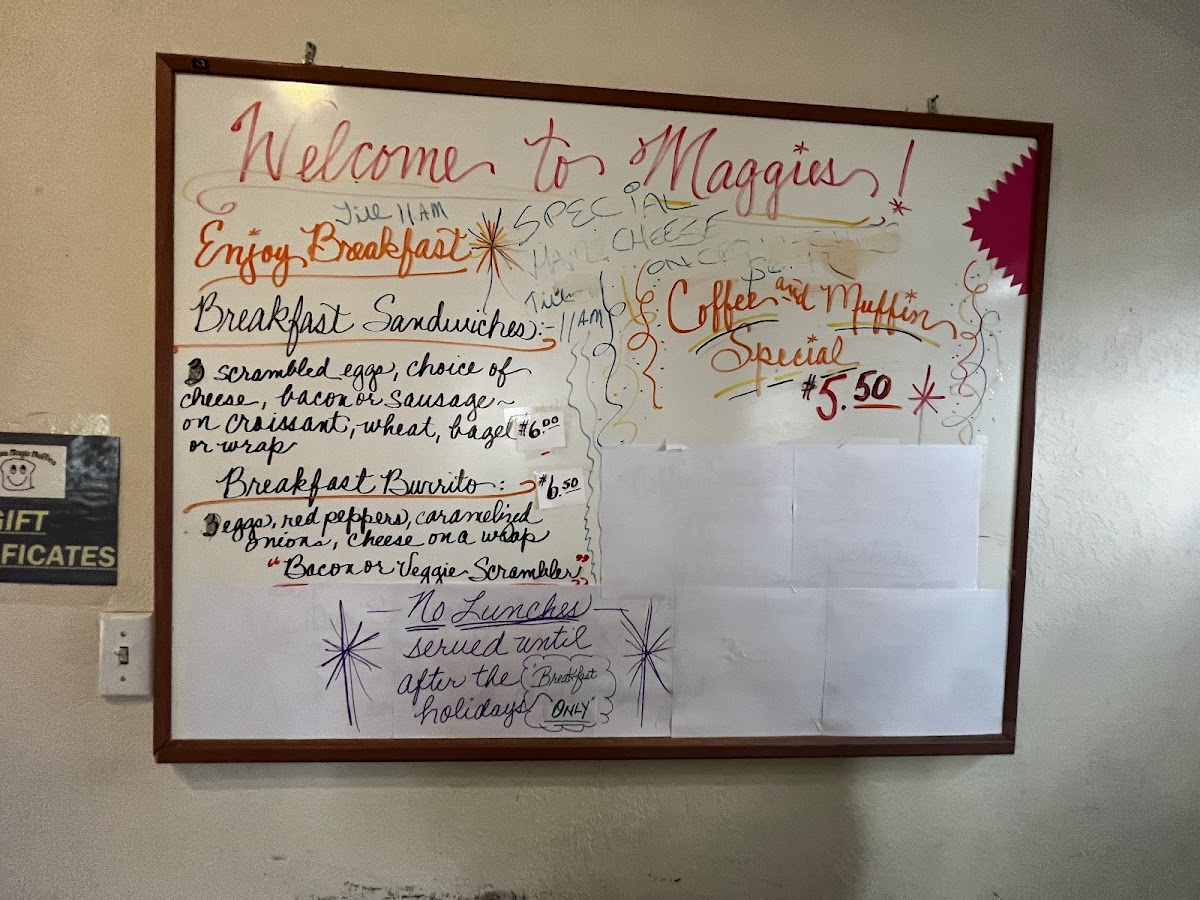 Welcome to Maggies!
Till 11 AM
Enjoy Breakfast
SPECIAL
HAM, CHEESE
ON
Till
11 AM
Breakfast Sandwiches:-
3 scrambled eggs, choice of
cheese, bacon or sausage~
on croissant, wheat, bagel
or wrap
$6.00
Breakfast Burrito:
$6.50
3 eggs, red peppers, caramelized
onions, cheese on a wrap
"Bacon or Veggie Scrambler"
Coffee and Muffin
Special
#5.50
No Lunches
served until
after the
holidays
"Breakfast
ONLY"
Magic Muffins
GIFT
FICATES